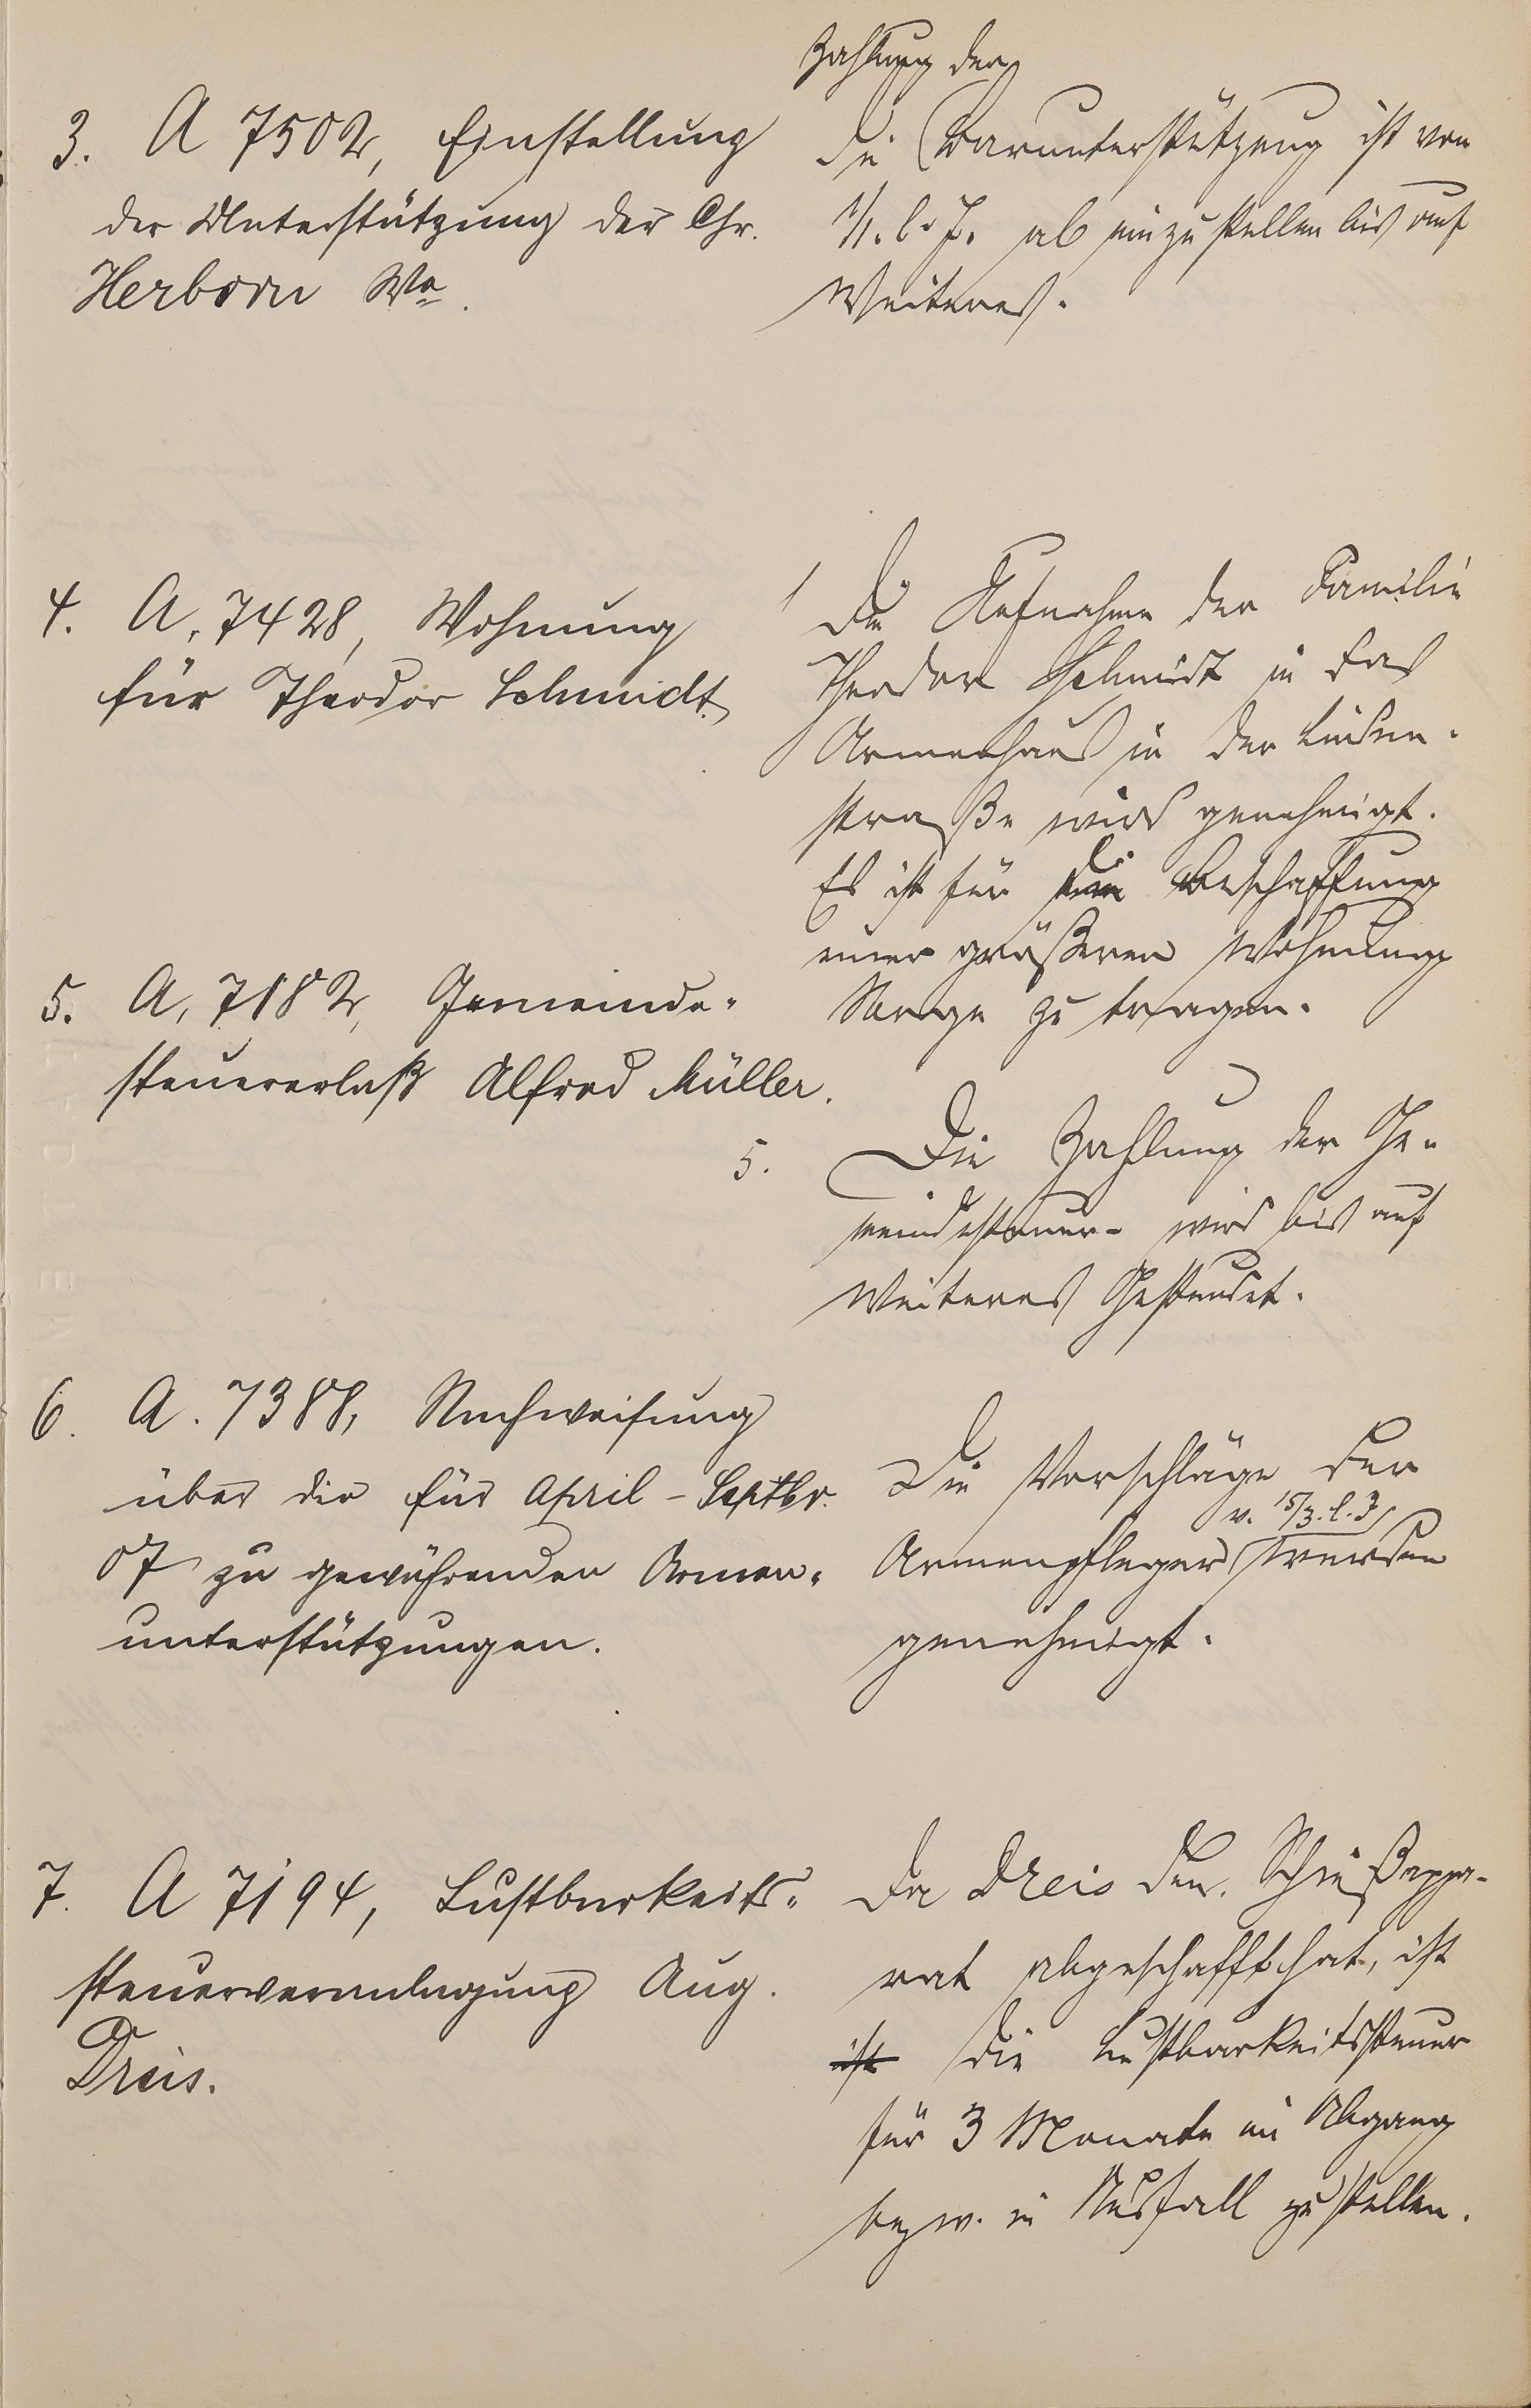 3. A 7502, Einstellung
der Unterstützung der Chr.
Herborn We.
Zahlung der
die Barunterstützung ist von
1/1. l. J. ab einzustellen bis auf
Weiteres.
4. A. 7428, Wohnung
für Theodor Schmidt.
Die Aufnahme der Familie
Theodor Schmidt in das
Armenhaus in der Linden-
straße wird genehmigt.
Es ist für die Beschaffung
einer größeren Wohnung
Sorge zu tragen.
5. A. 7182, Gemeinde-
steuererlaß Alfred Müller.
5. Die Zahlung der Ge-
meindesteuer wird bis auf
Weiteres Gestundet.
6. A. 7388, Nachweisung
über die für April - Septbr.
07 zu gewährenden Armen-
unterstützungen.
Die Vorschläge der
v. 15/3. l. J.
Armenpfleger werden
genehmigt.
7. A 7194, Lustbarkeits-
steuerveranlagung Aug.
Dreis.
Da Dreis den Schießappa-
rat abgeschafft hat, ist
ist die Lustbarkeitssteuer
für 3 Monate in Abgang
bezw. in Ausfall zu stellen.